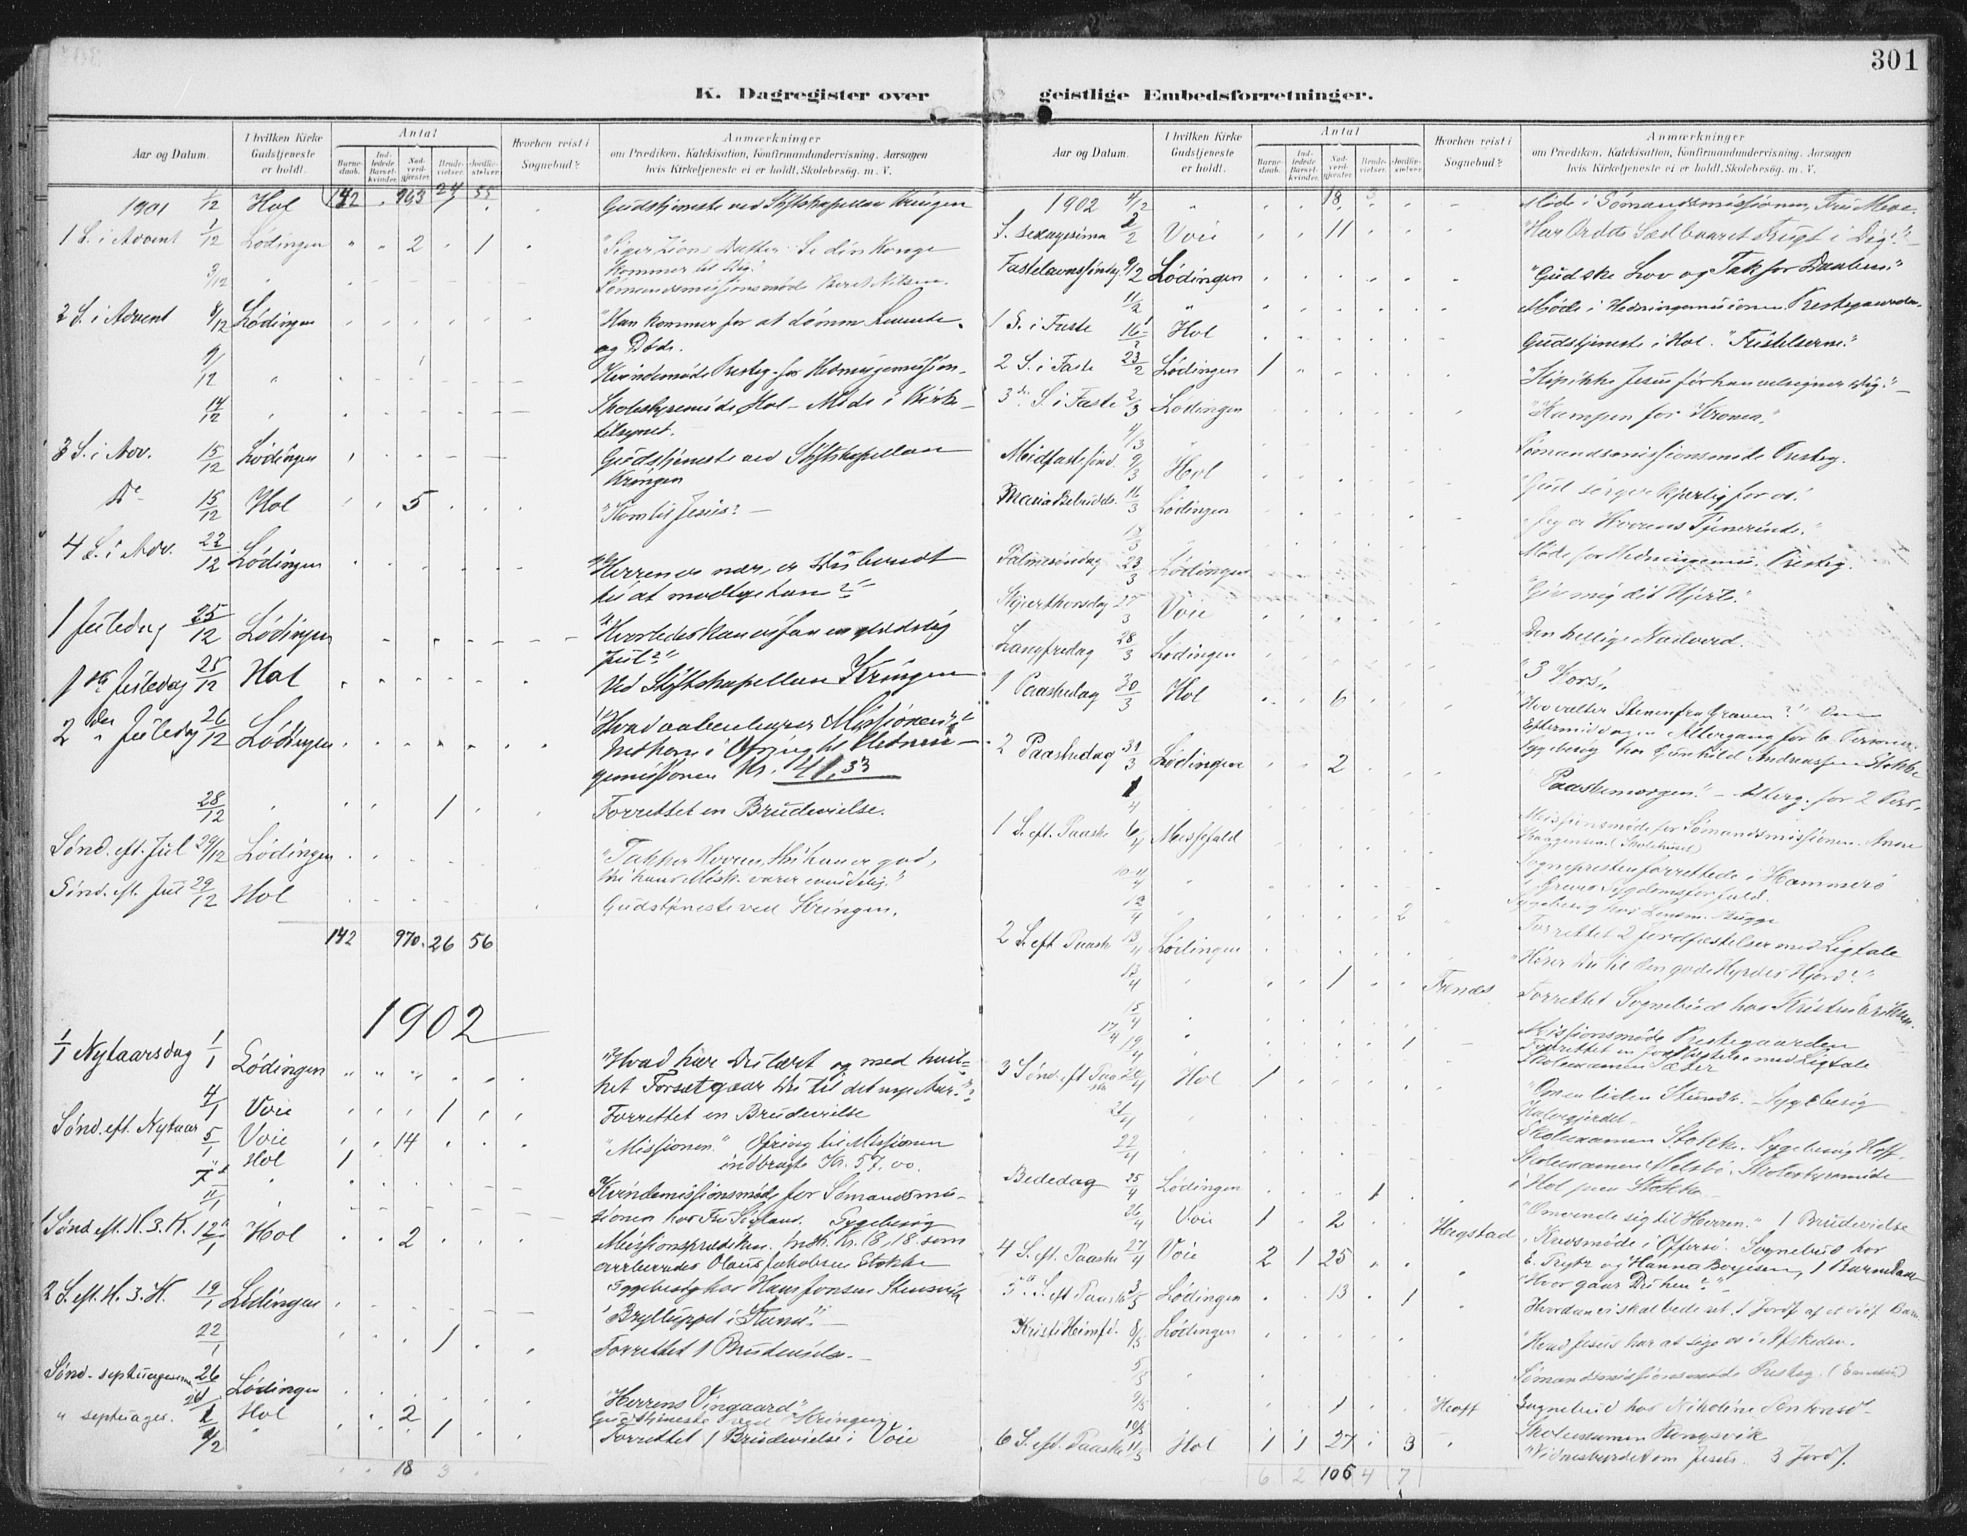 301
K. Dagregister over geistlige Embedsforretninger.
Aar og Datum.
I hvilken Kirke Gudstjeneste er holdt.
Antal
Barne-daab.
Ind-ledede Barsel-kvinder.
Nad-verd-gjester.
Brude-vielser.
Jordfæ-stelser.
Hvorhen reist i Sognebud?
Anmærkninger
om Prædiken, Katekisation, Konfirmandundervisning. Aarsagen
hvis Kirketjeneste ei er holdt. Skolebesøg. m. V.
1901 1/12 Hol 142 963 24 55 Gudstjeneste ved Stiftskapellan Kringen
1 S. i Advent 1/12 Lødingen 2 1 "Siger Zions Datter: Se din Konge
Kommer til Dig."
3/12 Sømandsmissionsmøde Nilsen.
2 S. i Advent 8/12 Lødingen "Han kommer for at dømme Levende
og Døde.
9/12 Kvindemøde Presteg. for Hedningemission
14/12 Skolestyremøde Hol – Møde i Kirke-
tilsynet.
3 S. i Adv. 15/12 Lødingen Gudstjeneste ved Stiftskapellan
Kringen
De 15/12 Hol 5 "Kom til Jesus" –
4 S. i Adv. 22/12 Lødingen "Herren er nær, er Du beredt
til at modtage ham?"
1 Juledag 25/12 Lødingen "Hvorledes kan vi faa en glædelig
Jul?"
1ste Juledag 25/12 Hol Ved Stiftskapellan Kringen
2den Juledag 26/12 Lødingen "Hvad aabenbarer Missionen?"
Indkom i Ofring til Hednin-
gemissionen Kr. 41,33
28/12 1 Forrettet en Brudevielse.
Sønd. eft. Jul 29/12 Lødingen "Takker Herren, thi han er god,
thi hans Misk. varer evindelig."
Sønd. eft. Jul 29/12 Hol Gudstjeneste ved Kringen.
142 970 26 56
1902
1/1 Nytaarsdag 1/1 Lødingen "Hvad har Du lært og med hvil-
ket Forset gaar Du til det nye Aar?"
4/1 Voie 1 Forrettet en Brudevielse
Sønd. eft. Nytaar 5/1 Voie 14 "Missionen" Ofring til Missionen
Hol 1 indbragte Kr. 57.00.
11/1 Kvindemissionsmøde for Sømandsmis-
sionen hos Fru Sygebesøg
1 Sønd eft. H. 3. K. 12/1 Hol 2 Missionsprædiken. Indk. Kr. 18,18 som
Olaus Jakobsen Stokke
2 S. eft. H. 3. K. 19/1 Lødingen Sygebesøg hos Hans Jonsen Stensvik
"Bryllupet i Kana" –
22/1 1 Forrettet 1 Brudevielse. –
Sønd. septuagesima 26/1 Lødingen "Herrens Vingaard"
" septuages. Hol 2 Gudstjeneste ved Kringen
2/2 1 Forrettet 1 Brudevielse i Voie
18 3
Aar og Datum.
I hvilken Kirke Gudstjeneste er holdt.
Antal
Barne-daab.
Ind-ledede Barsel-kvinder.
Nad-verd-gjester.
Brude-vielser.
Jordfæ-stelser.
Hvorhen reist i Sognebud?
Anmærkninger
om Prædiken, Katekisation, Konfirmandundervisning. Aarsagen
hvis Kirketjeneste ei er holdt. Skolebesøg. m. V.
1902 4/2 18 3 Møde i Sømandsmissionen, Fru
S. sexagesima 2/2 Voie 11 "Har Ordets Sæd baaret Frugt i Dig?"
Fastelavnssøndag 9/2 Lødingen "Gud ske Lov og Tak for Daaben"
11/2 Møde i Hedningemissionen Prestegaarden
1 S. i Faste 16/2 Hol Gudstjeneste i Hol. "Fristelserne"
2 S. i Faste 23/2 Lødingen 1 "Slip ikke Jesus før han velsigner Dig." –
3die S. i Faste 2/3 Lødingen "Kampen for Kronen"
4/3 Sømandsmissionsmøde Presteg.
Midfastesønd. 9/3 Hol "Gud sørger kjærlig for os."
Mariæ Bebudds. 16/3 Lødingen "Jeg er Herrens Tjenerinde."
18/3 Møde for Hedningemis. Presteg.
Palmesøndag 23/3 Lødingen "Giv mig dit Hjerte"
Skjærthorsdag 27/3 Voie Den hellige Nadverd.
Langfredag 28/3 Lødingen "3 Kors"
1 Paaskedag 30/3 Hol 6 "Hvo vælter Stenen fra Graven?" Om
Eftermiddagen Altergang for 6 Personer
Sygebesøg hos Gunhild Andreassen Stokke
2 Paaskedag 31/3 Lødingen 2 "Paaskemorgen" – Alterg. for 2 Pers.
1/4 Missionsmøde for Sømandsmissionen. Anne
(Skolehuset)
1 S. eft. Paaske 6/4 Messefald Sognepresten forrettede i Hammerø
Grund Sygdomsforfald.
10-11/4 Sygebesøg hos Lensm. Mugge
12/4 2 Forrettet 2 Jordfæstelser med Ligtale
2 S. eft. Paaske 13/4 Lødingen "Hører Du til den gode Hyrdes Hjord?"
13/4 1 Forrettet Sognebud hos Kristen
15/4 Missionsmøde Prestegaarden
17/4 19/4 1 Forrettet en Jordfæstelse med Ligtale
Skoleexamen
3 Sønd. eft. Paaske 20/4 Hol 1 "Om en liden Stund". – Sygebesøg
21/4 Skoleexamen Stokke. Sygebesøg Hoff
22/4 Skoleexamen Skolestyremøde
i Hol paa Stokke. –
Bededag 25/4 Lødingen 1 "Omvende sig til Herren." 1 Brudevielse
26/4 Voie 1 2 Hegstad Kredsmøde i Offersø. Sognebud hos
4 S. eft. Paaske 27/4 Voie 2 1 25 E. Trytz og Hanna Borgesen, 1 Barnedaab
"Hvor gaar Du hen?"
5te S. eft Paaske 3/5 Lødingen 13 1 Hvordan vi skal bede ret. 1 Jordf. af et Barn
Kristi Himmelf. 8/5 Lødingen "Hvad Jesus har at sige os i Afskeden.
5/5 Sømandsmissionsmøde Presteg.
9/5 1 Hoff Sognebud hos Nikoline
10/5 Skoleexamen Kongsvik
6 S. eft. Paaske 11/5 Hol 1 1 27 3 "Vidnesbyrdet om Jesus. 3 Jordf.
6 2 106 4 7